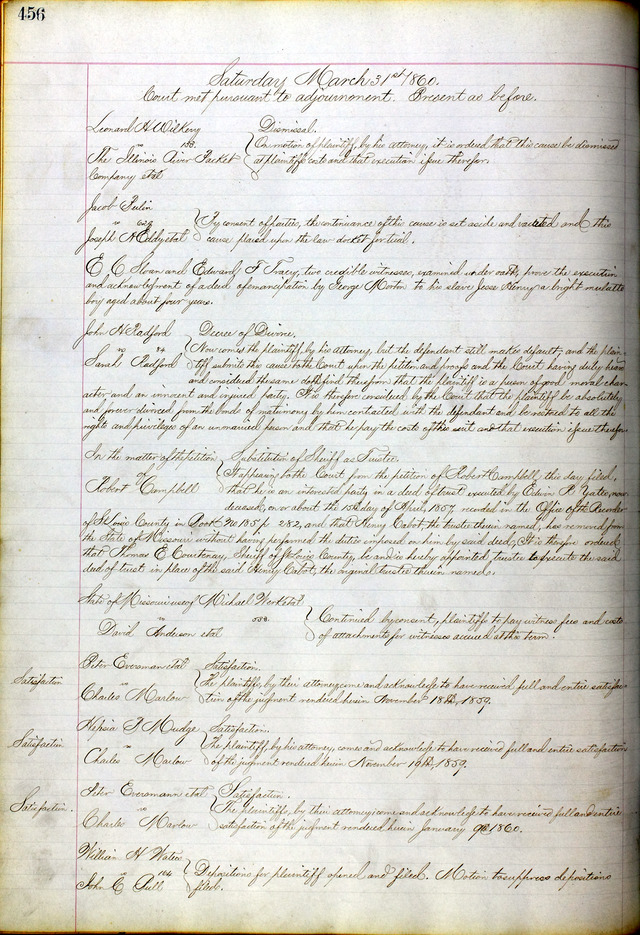 456
Saturday March 31st 1860.
Court met pursuant to adjournment. Present as before.
Leonard H Wilkery Dismissal.
vs 138. On motion of plaintiff, by his attorney, it is ordered that this cause be dismissed
The Illinois River Packet at plaintiffs costs and that execution issue therefor.
Company etal
Jacob
vs By consent of parties, the continuance of this cause is set aside and vacated and this
Joseph N Eddy etal cause placed upon the law docket for trial.
E, C, Sloan and Edward, F Tracy, two credible witnesses, examined under oath, prove the execution
and acknowledgment of a deed of emancipation by George Morton to his slave Jesse Henry a bright mulatto
boy aged about four years.
John H Radford Decree of Divorce.
vs 34 Now comes the plaintiff, by his attorney, but the defendant still makes default, and the plain-
Sarah Radford tiff submits this cause to the Court upon the petition and proofs and the Court having duly heard
and considered the same doth find therefrom that the plaintiff is a person of good moral char-
acter and an innocent and injured party. It is therefore considered by the Court that the plaintiff be absolutely
and forever divorced from the bonds of matrimony by him contracted with the defendant and be restored to all the
rights and privileges of an unmarried person and that he pay the costs of this suit and that execution issue therefor
In the matter of the petition Substitution of Sheriff as Trustee.
of It appearing to the Court from the petition of Robert Campbell, this day filed,
Robert Campbell that he is an interested party in a deed of trust executed by Edwin R Yates, now
deceased, on or about the 15th day of April, 1857, recorded in the Office of the Recorder
of St Louis County in Book No 185 p 282, and that Henry Cabot, the trustee therein named, has removed from
the State of Missouri without having performed the duties imposed on him by said deed, It is therefore ordered
that Thomas E Courtenay, Sheriff of St Louis County, be and is hereby appointed trustee to execute the said
deed of trust in place of the said Henry Cabot, the original trustee therein named.
State of Missouri use of Michael etal
vs 538. Continued by consent, plaintiffs to pay witness fees and costs
David Anderson etal of attachments for witnesses accrued at this term.
Peter Eversman etal Satisfaction.
Satisfaction vs The plaintiffs, by their attorney come and acknowledge to have received full and entire satisfac-
Charles Marlow tion of the judgment rendered herein November 18th, 1859.
Hepsia S Mudge Satisfaction.
Satisfaction vs The plaintiff, by his attorney, comes and acknowledges to have received full and entire satisfaction
Charles Marlow of the judgment rendered herein November 19th, 1859.
Peter Eversmann etal Satisfaction.
Satisfaction. vs The plaintiffs, by their attorney come and acknowledge to have received full and entire
Charles Marlow satisfaction of the judgment rendered herein January 9th 1860.
William H Waters
vs 164 Depositions for plaintiff opened and filed. Motion to suppress depositions
John C Bull filed.